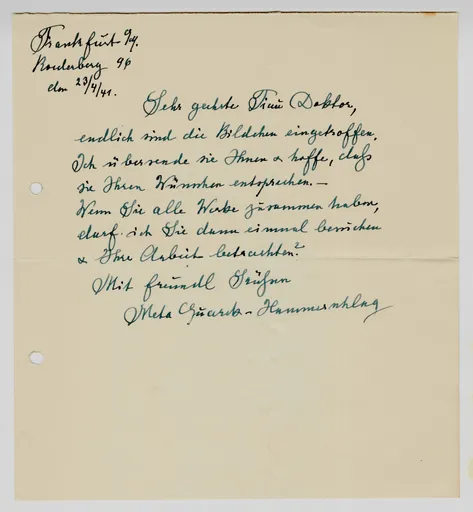 Frankfurt a/M.
Roederberg 96
den 23/4/41.
Sehr geehrte Frau Doktor,
endlich sind die Bildchen eingetroffen.
Ich übersende sie Ihnen & hoffe, daß
sie Ihren Wünschen entsprechen. –
Wenn Sie alle Werke zusammen haben,
darf ich Sie dann einmal besuchen
& Ihre Arbeit betrachten?
Mit freundl Grüßen
Meta Quarck-Hammerschlag